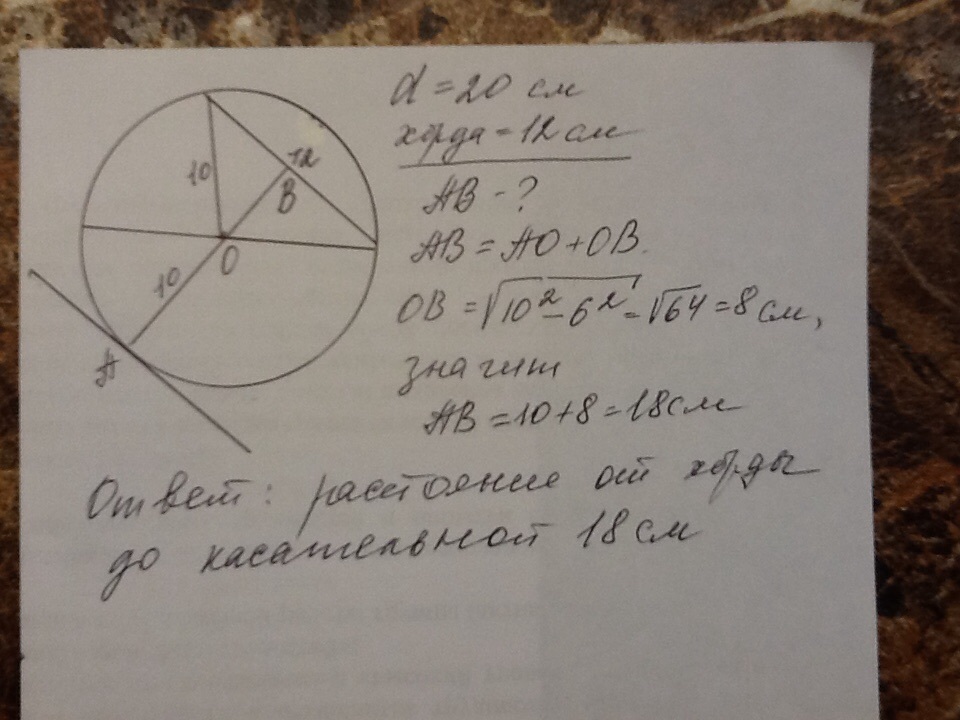 d = 20 см
хорда = 12 см
AB - ?
AB = AO + OB.
OB = √10² - 6² = √64 = 8 см,
значит
AB = 10 + 8 = 18 см
Ответ: расстояние от хорды
до касательной 18 см
10
12
B
O
10
A